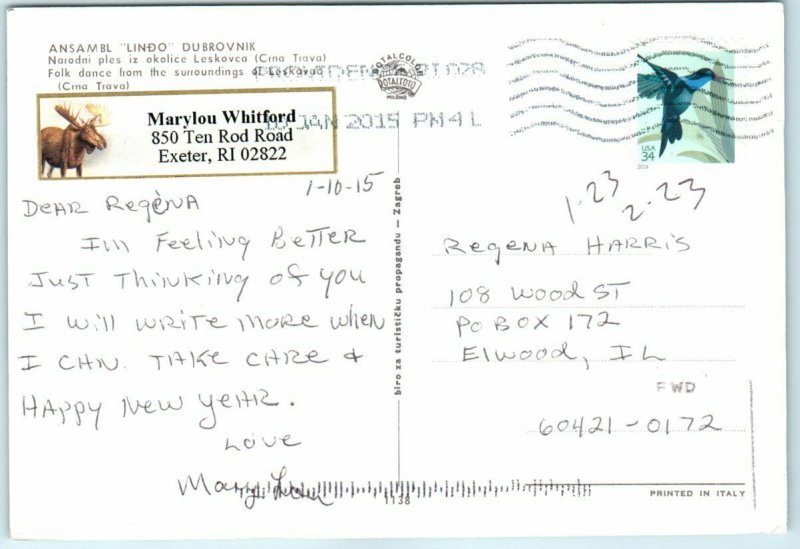 ANSAMBL "LINĐO" DUBROVNIK
Narodni ples iz okolice Leskovca (Crna Trava)
Folk dance from the surroundings of Leskovac
(Crna Trava)
Marylou Whitford
850 Ten Rod Road
Exeter, RI 02822
ROTALCOLOR
ROTALFOTO
MILANO
10 JAN 2015 PM 4 L
USA
34
2014
1-10-15
1.23
2.23
DEAR Regena
Im Feeling Better
Just Thinking of you
I will write more when
I CAN. TAKE CARE &
HAPPY New YEAR.
Love
Mary Lou
biro za turističku propagandu — Zagreb
1138
Regena HARRIS
108 WOOD ST
PO BOX 172
Elwood, IL
FWD
60421-0172
PRINTED IN ITALY